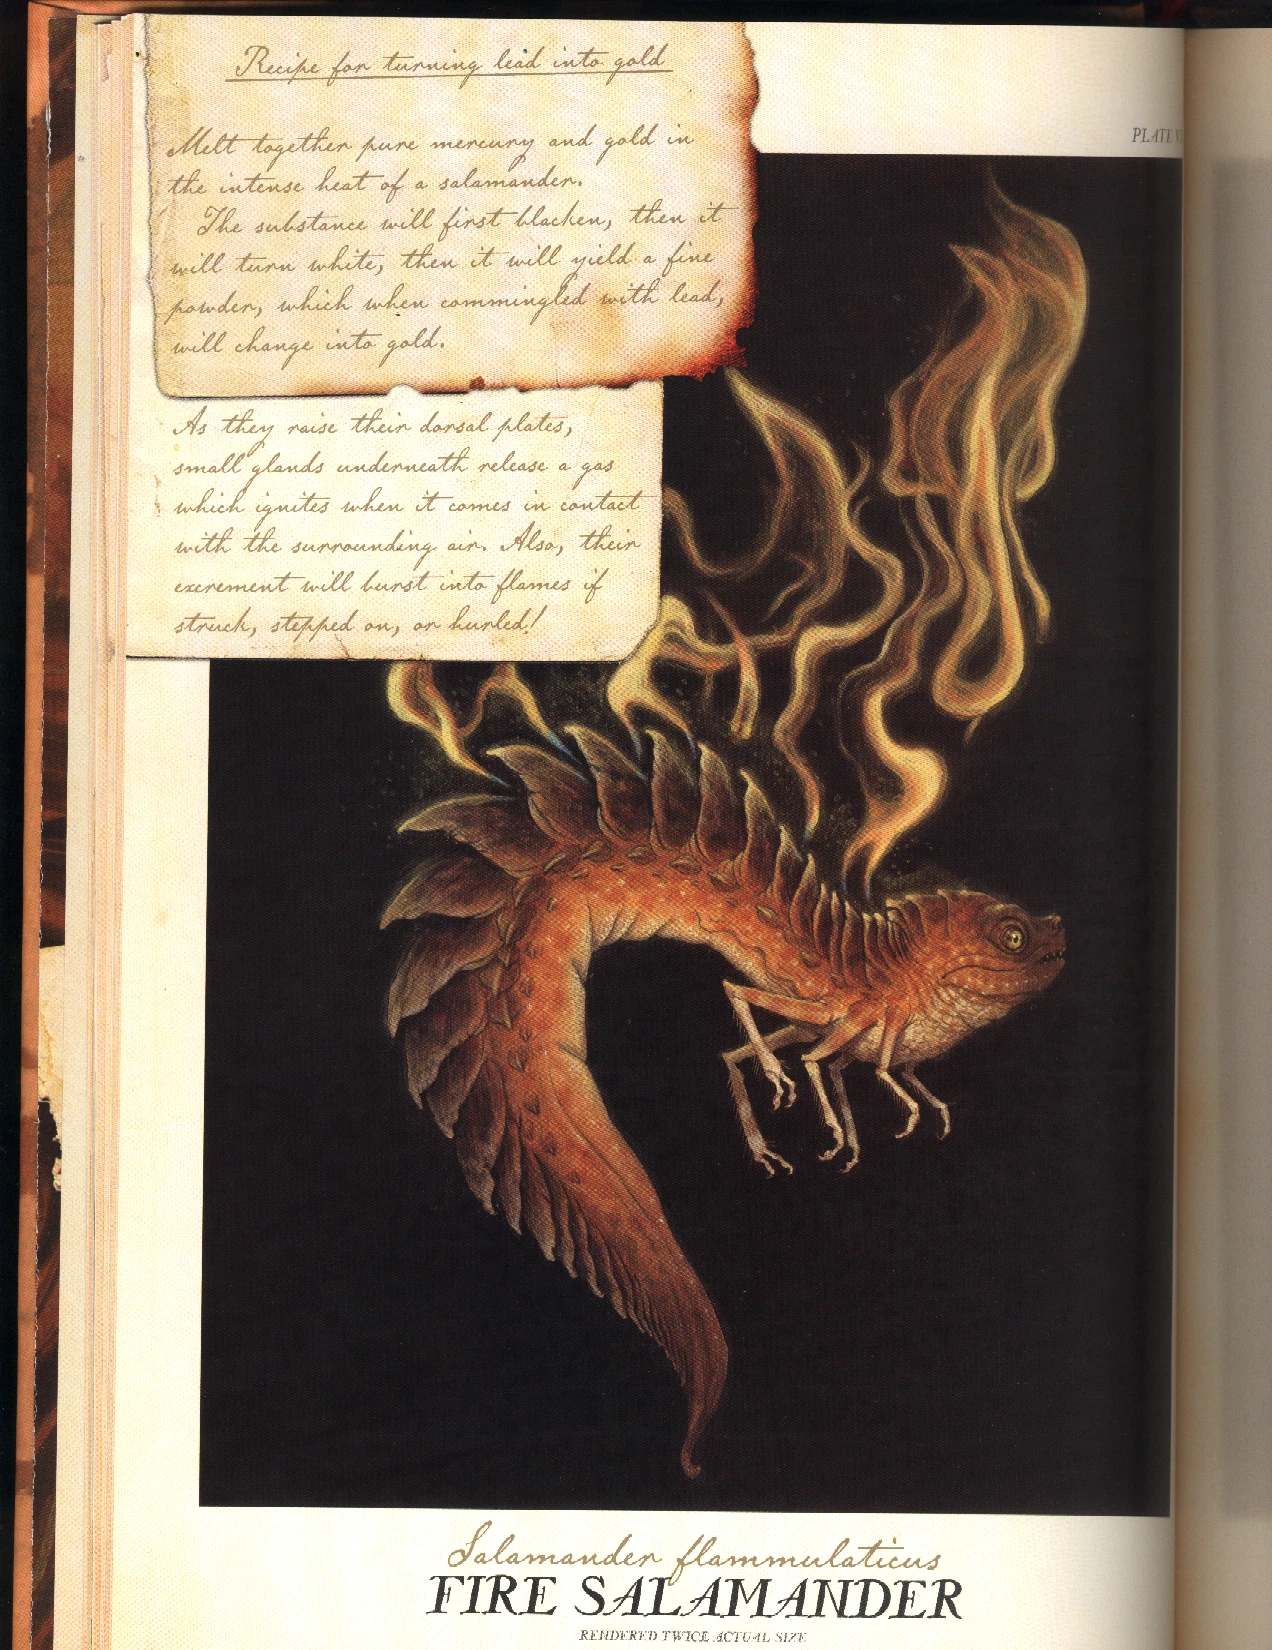 Recipe for turning lead into gold
Melt together pure mercury and gold in
the intense heat of a salamander.
The substance will first blacken, then it
will turn white, then it will yield a fine
powder, which when commingled with lead,
will change into gold.
PLATE
As they raise their dorsal plates,
small glands underneath release a gas
which ignites when it comes in contact
with the surrounding air. Also, their
excrement will burst into flames if
struck, stepped on, or hurled!
Salamander flammulaticus
FIRE SALAMANDER
RENDERED TWICE ACTUAL SIZE